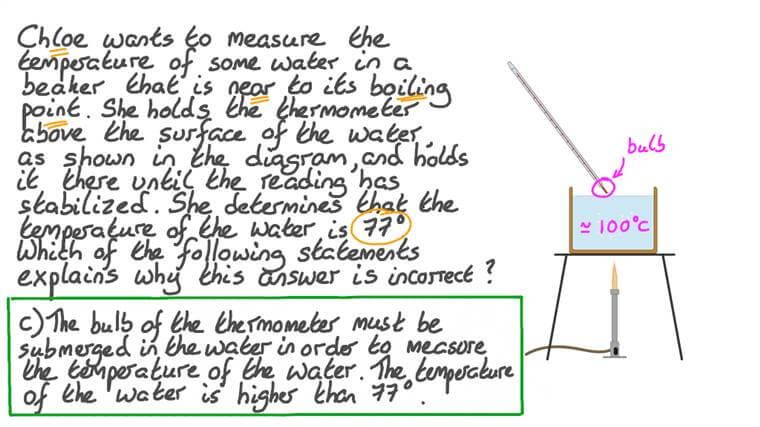 Chloe wants to measure the
temperature of some water in a
beaker that is near to its boiling
point. She holds the thermometer
above the surface of the water,
as shown in the diagram, and holds
it there until the reading has
stabilized. She determines that the
temperature of the water is 77°
Which of the following statements
explains why this answer is incorrect?
c) The bulb of the thermometer must be
submerged in the water in order to measure
the temperature of the water. The temperature
of the water is higher than 77°.
bulb
≃ 100°C